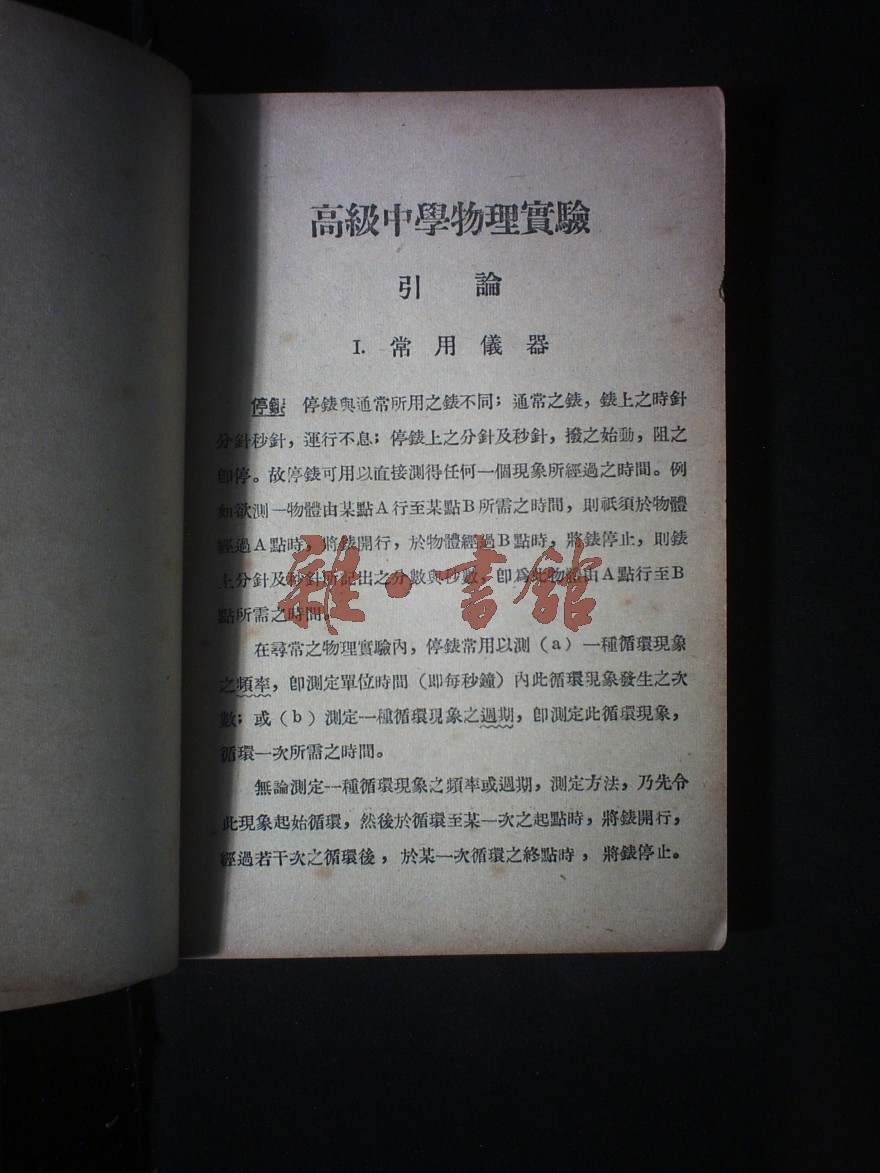 高級中學物理實驗
引論
I. 常用儀器
停錶 停錶與通常所用之錶不同；通常之錶，錶上之時針
分針秒針，運行不息；停錶上之分針及秒針，撥之始動，阻之
卽停。故停錶可用以直接測得任何一個現象所經過之時間。例
如欲測一物體由某點A行至某點B所需之時間，則祇須於物體
經過A點時，將錶開行，於物體經過B點時，將錶停止，則錶
上分針及秒針所記出之分數與秒數，卽爲此物體由A點行至B
點所需之時間。
在尋常之物理實驗內，停錶常用以測（a）一種循環現象
之頻率，卽測定單位時間（即每秒鐘）內此循環現象發生之次
數；或（b）測定一種循環現象之週期，卽測定此循環現象，
循環一次所需之時間。
無論測定一種循環現象之頻率或週期，測定方法，乃先令
此現象起始循環，然後於循環至某一次之起點時，將錶開行，
經過若干次之循環後，於某一次循環之終點時，將錶停止。
雜·書館